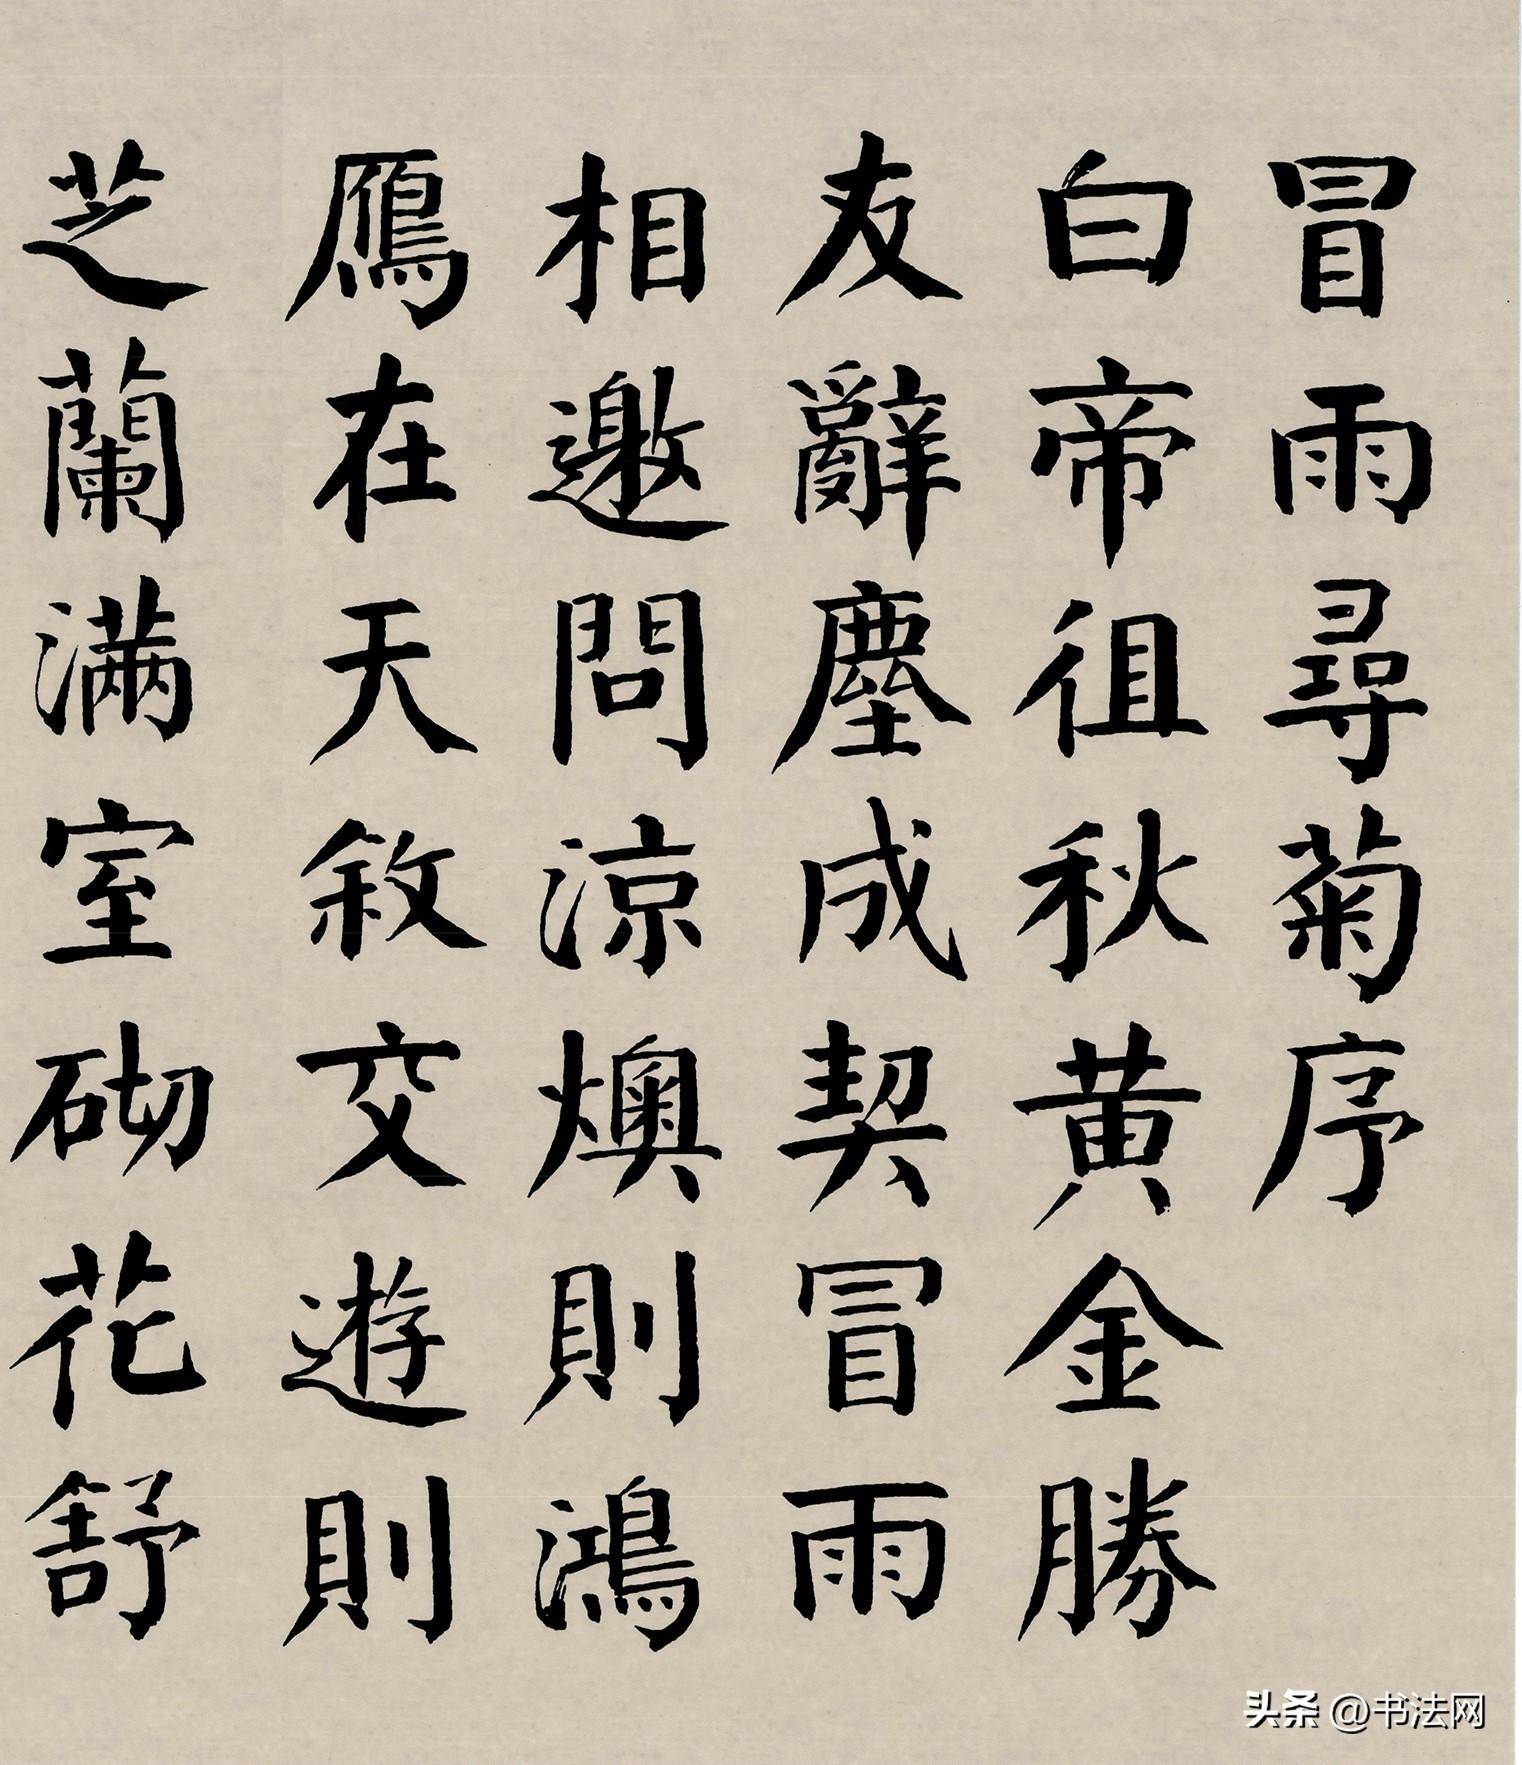 冒雨尋菊序
白帝徂秋黄金勝
友辭塵成契冒雨
相邀問涼燠則鴻
鴈在天敘交遊則
芝蘭滿室砌花舒
头条 @书法网